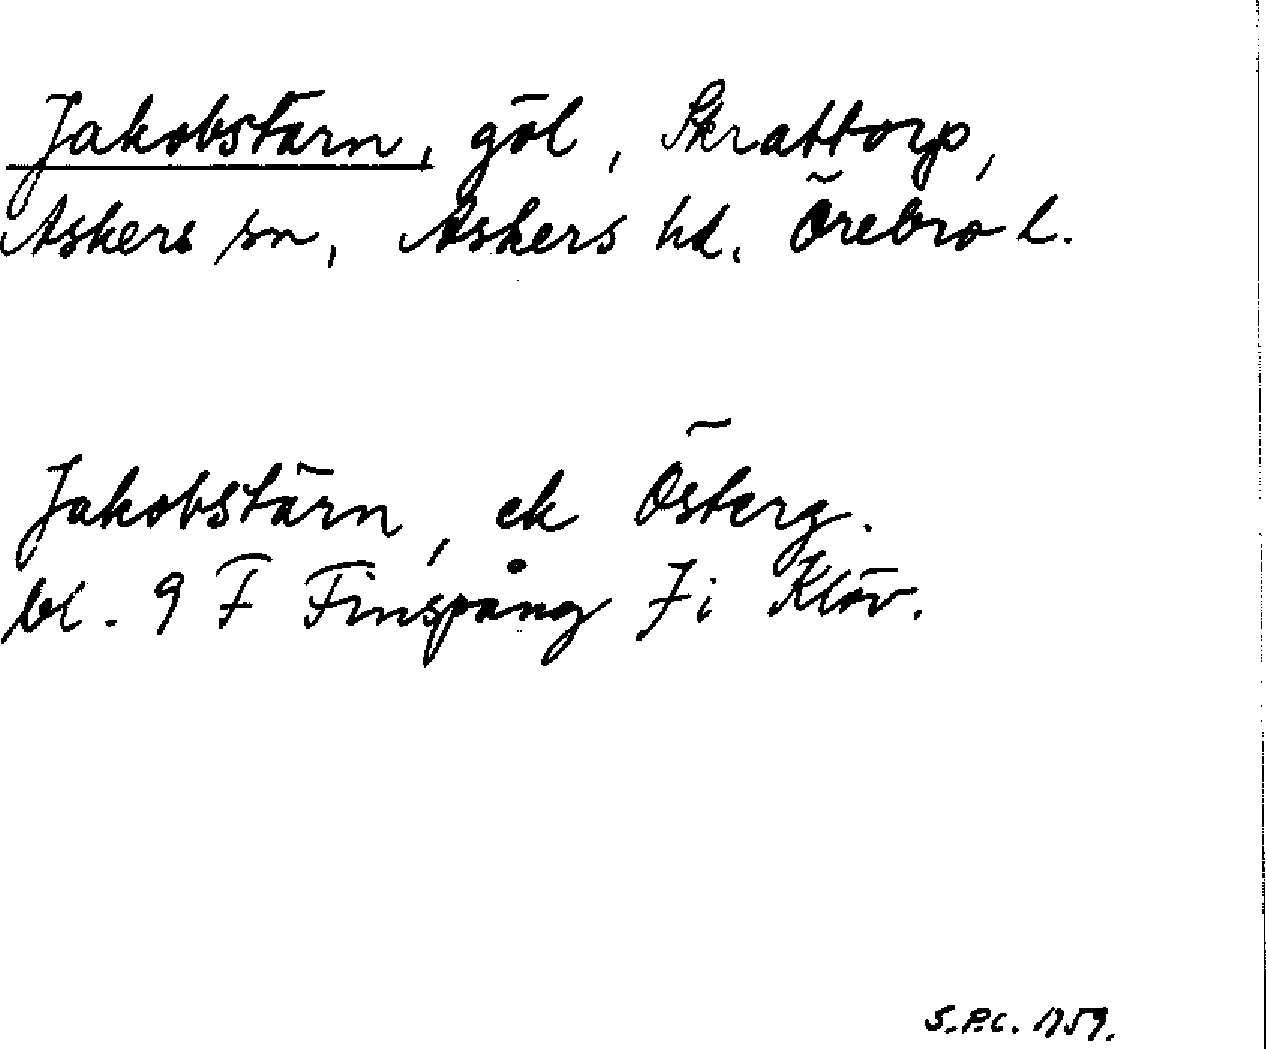 Jakobstärn, göl, Skrattorp,
Askers sn, Askers hd. Örebro l.
Jakobstärn, ek Österg.
bl. 9 F Finspång 7 i Klöv.
S.P.C. 1959.